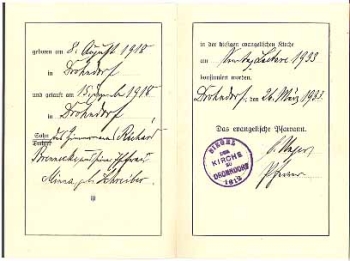 geboren am 8. August 1918
in Drohndorf
und getauft am 15. Septbr 1918
in Drohndorf
Sohn des Zimmermanns Richard
Tochter
Minna geb. Schreiber
in der hiesigen evangelischen Kirche
am Sonntag Laetare 1933
konfirmiert worden.
Drohndorf, den 26. März 1933
Das evangelische Pfarramt.
SIEGEL
DER
KIRCHE
ZU
DROHNDORF
1812
Pfarrer